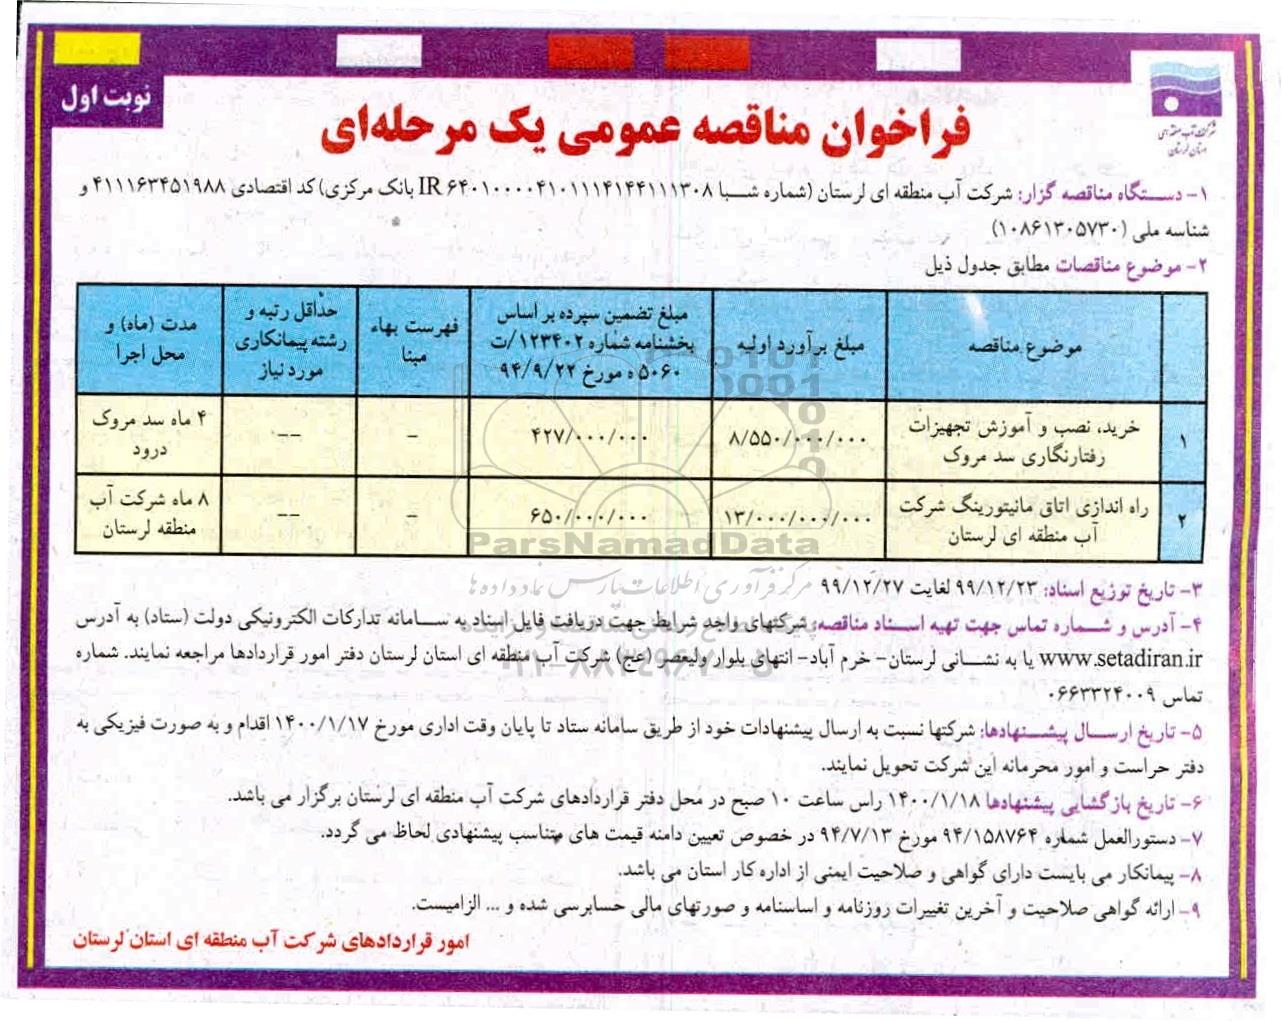 نوبت اول
شرکت آب منطقه‌ای
استان لرستان
فراخوان مناقصه عمومی یک مرحله‌ای
۱- دستگاه مناقصه گزار: شرکت آب منطقه ای لرستان (شماره شبا IR ۶۴۰۱۰۰۰۰۴۱۰۱۱۱۴۱۴۴۱۱۱۳۰۸ بانک مرکزی) کد اقتصادی ۴۱۱۱۶۳۴۵۱۹۸۸ و
شناسه ملی (۱۰۸۶۱۳۰۵۷۳۰)
۲- موضوع مناقصات مطابق جدول ذیل
موضوع مناقصه
مبلغ برآورد اولیه
مبلغ تضمین سپرده بر اساس
بخشنامه شماره ۱۲۳۴۰۲/ت
۵۰۶۰ ه مورخ ۹۴/۹/۲۲
فهرست بهاء
مبنا
حداقل رتبه و
رشته پیمانکاری
مورد نیاز
مدت (ماه) و
محل اجرا
۱
خرید، نصب و آموزش تجهیزات
رفتارنگاری سد مروک
۸/۵۵۰/۰۰۰/۰۰۰
۴۲۷/۰۰۰/۰۰۰
-
--
۴ ماه سد مروک
درود
۲
راه اندازی اتاق مانیتورینگ شرکت
آب منطقه ای لرستان
۱۳/۰۰۰/۰۰۰/۰۰۰
۶۵۰/۰۰۰/۰۰۰
-
--
۸ ماه شرکت آب
منطقه لرستان
ParsNamadData
مرکز فرآوری اطلاعات پارس نماد داده ها
۳- تاریخ توزیع اسناد: ۹۹/۱۲/۲۳ لغایت ۹۹/۱۲/۲۷
۴- آدرس و شماره تماس جهت تهیه اسناد مناقصه: شرکتهای واجد شرایط جهت دریافت فایل اسناد به سامانه تدارکات الکترونیکی دولت (ستاد) به آدرس
www.setadiran.ir یا به نشانی لرستان- خرم آباد- انتهای بلوار ولیعصر (عج) شرکت آب منطقه ای استان لرستان دفتر امور قراردادها مراجعه نمایند. شماره
تماس ۰۶۶۳۳۲۴۰۰۹
۵- تاریخ ارسال پیشنهادها: شرکتها نسبت به ارسال پیشنهادات خود از طریق سامانه ستاد تا پایان وقت اداری مورخ ۱۴۰۰/۱/۱۷ اقدام و به صورت فیزیکی به
دفتر حراست و امور محرمانه این شرکت تحویل نمایند.
۶- تاریخ بازگشایی پیشنهادها ۱۴۰۰/۱/۱۸ راس ساعت ۱۰ صبح در محل دفتر قراردادهای شرکت آب منطقه ای لرستان برگزار می باشد.
۷- دستورالعمل شماره ۹۴/۱۵۸۷۶۴ مورخ ۹۴/۷/۱۳ در خصوص تعیین دامنه قیمت های متناسب پیشنهادی لحاظ می گردد.
۸- پیمانکار می بایست دارای گواهی و صلاحیت ایمنی از اداره کار استان می باشد.
۹- ارائه گواهی صلاحیت و آخرین تغییرات روزنامه و اساسنامه و صورتهای مالی حسابرسی شده و ... الزامیست.
امور قراردادهای شرکت آب منطقه ای استان لرستان